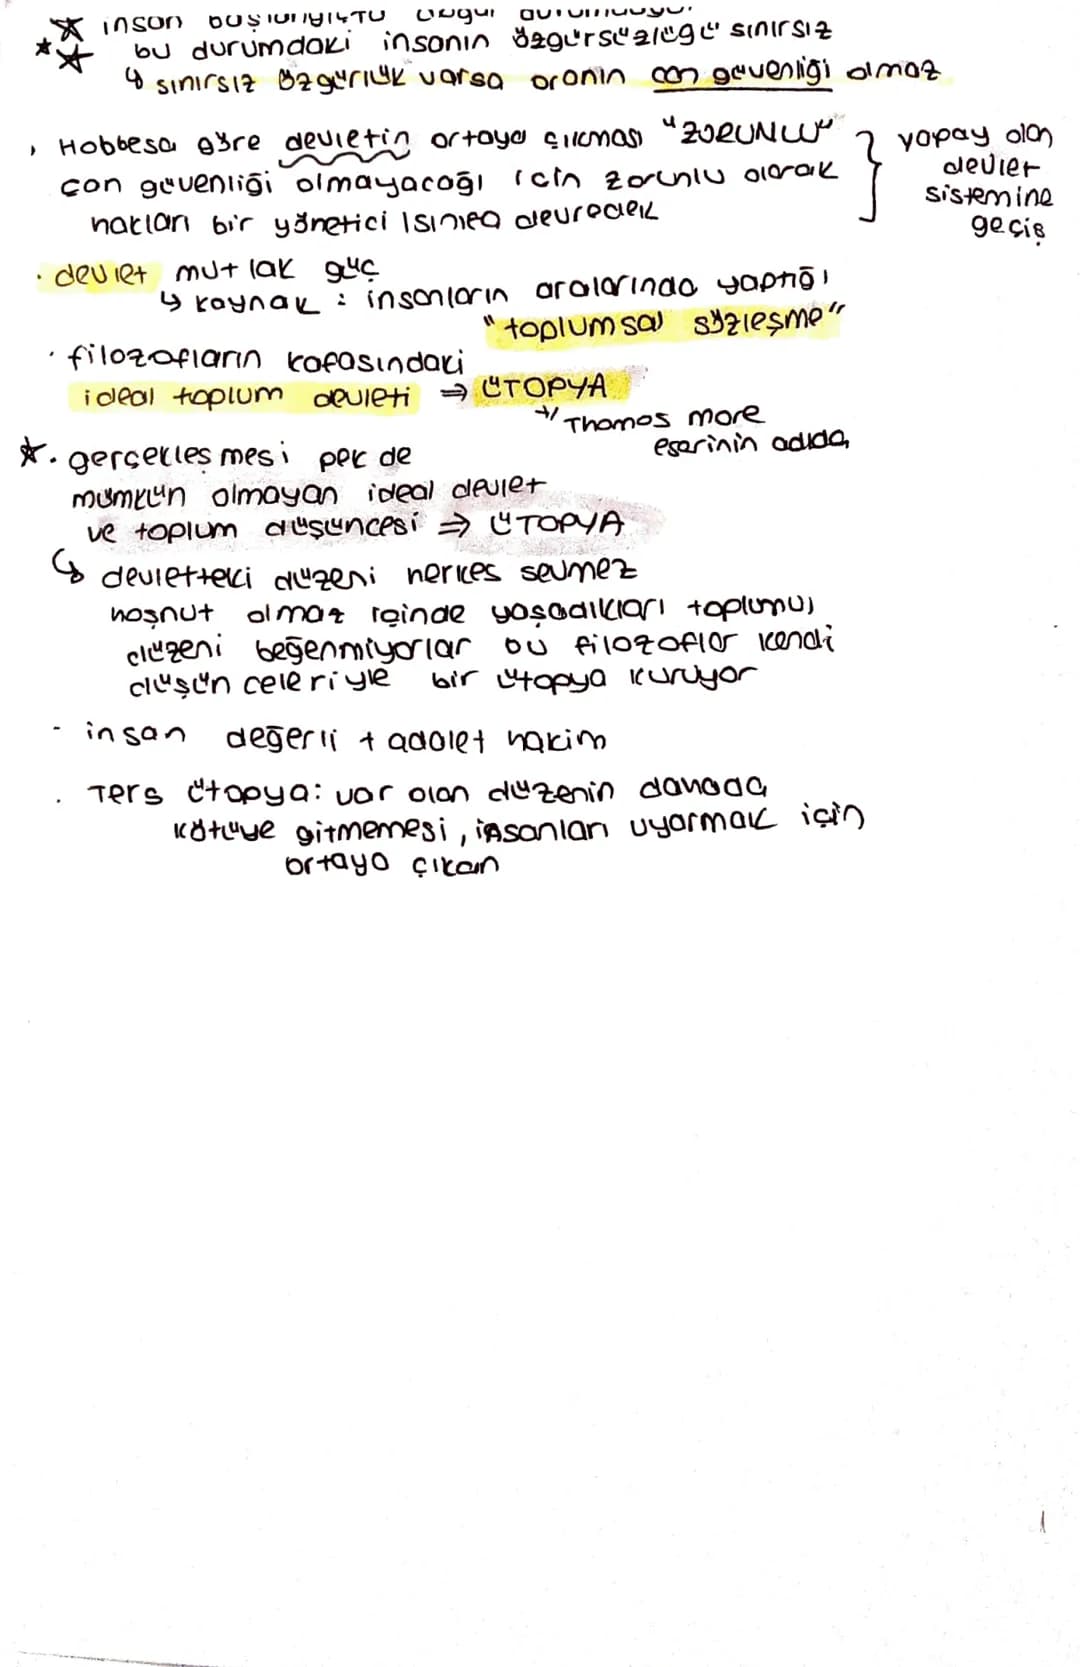 insan
bu durumdaki insanın özgürsüzlüğü sınırsız
↳ sınırsız özgürlük varsa oranın can güvenliği olmaz
, Hobbesa göre devletin ortaya çıkması "ZORUNLU"
can güvenliği olmayacağı için zorunlu olarak
hakları bir yönetici
} yapay olan
devlet
sistemine
geçiş
· devlet mutlak güç
↳ kaynak : insanların aralarında yaptığı
"toplumsal sözleşme"
· filozofların kafasındaki
ideal toplum devleti ⇒ ÜTOPYA
Thomas more
eserinin adıda
· gerçekleşmesi pek de
mümkün olmayan ideal devlet
ve toplum düşüncesi ⇒ ÜTOPYA
↳ devletteki düzeni herkes sevmez
hoşnut olmaz içinde yaşadıkları toplumu,
düzeni beğenmiyorlar bu filozoflar kendi
düşünceleriyle bir ütopya kuruyor
- insan değerli + adalet hakim
. Ters ütopya: var olan düzenin dahada
kötüye gitmemesi, insanları uyarmak için
ortaya çıkan